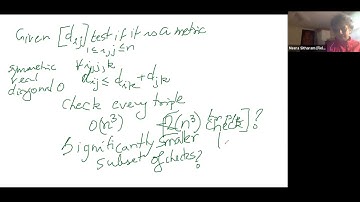 Given [dij] test if it is a metric
1≤i,j≤n
symmetric
real
diagonal 0
∀i,j,k
dij ≤ dik + djk
check every triple
O(n³)
Ω(n³) triple check]?
Significantly smaller
subset of checks?